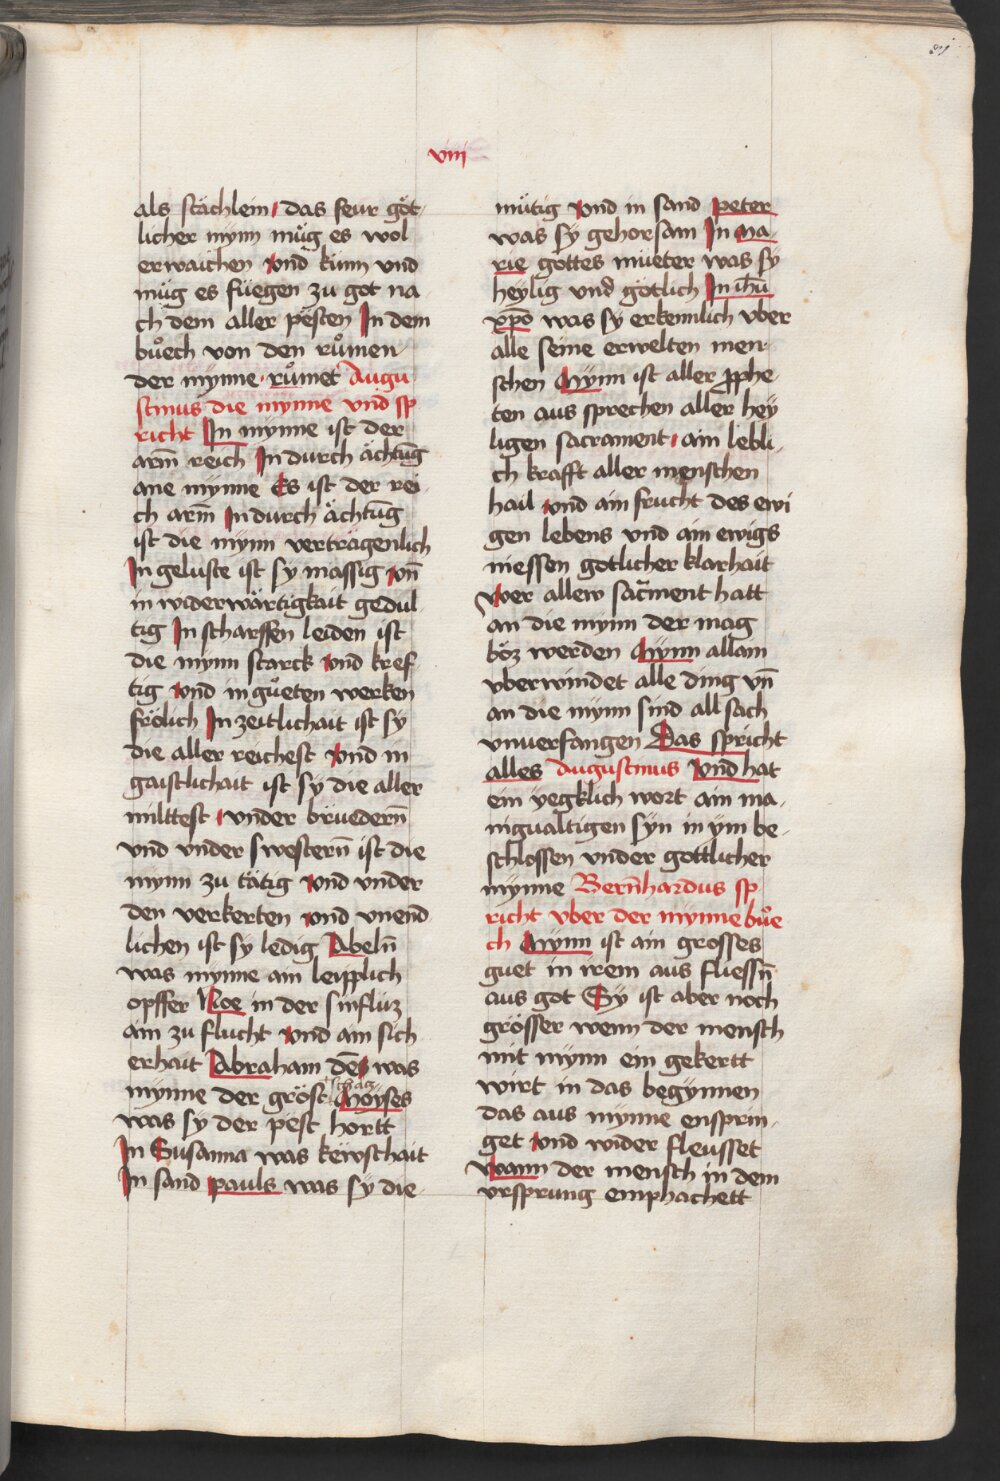 viii
als stächlein das feur göt
licher mynn müg es wol
erwaichen vnd künn vnd
müg es füegen zu got na
ch dem aller pesten In dem
bůech von den růmen
der mynne růmet Augu
stinus die mynne vnd sp
richt In mynne ist der
arm̄ reich In durch ächtūg
ane mynne Es ist der rei
ch arm̄ In durch ächtūg
ist die mynn verträgenlich
In geluste ist sy massig vn̄
in widerwärtigkait gedul
tig In scharffen leiden ist
die mynn starck vnd kref
tig vnd in gůeten werken
frölich In zeitlichait ist sy
die aller reichest vnd in
gaistlichait ist sy die aller
milttest vnder brüedern̄
vnd vnder swestern̄ ist die
mynn zu tätig vnd vnder
den verkerten vnd vnend
lichen ist sy ledig Abeln̄
was mynne ain leipplich
opffer Noe in der sinfluz
ain zu flucht vnd ain sich
erhait Abraham dē was
mynne der gröst schatz Moyses
was sy der pest hortt
In Susanna was kewschait
In sand pauls was sy die
mütig vnd in sand peter
was sy gehorsam In ma
rie gottes müeter was sy
heylig vnd götlich In ih̄u
xp̄o was sy erkennlich vber
alle seine erwelten men
schen Mynn ist aller ꝓphe
ten aus sprechen aller hey
ligen sacrament ain lebli
ch krafft aller menschen
hail vnd ain frucht des ewi
gen lebens vnd ain ewigs
niessen gotlicher klarhait
Wer allew sacment hatt
an die mynn der mag
böz werden Mynn allain
vberwindet alle ding vn̄
an die mynn sind all sach
vnuerfangen Das spricht
alles Augustinus Vnd hat
ein yegklich wort ain ma
nigualtigen syn in ym be
schlossen vnder gottlicher
mynne Bern̄hardus sp
richt vber der mynne bůe
ch Mynn ist ain grosses
guet in irem aus fliessn̄
aus got Sy ist aber noch
grösser wenn der mensch
mit mynn ein gekertt
wirt in das begynnen
das aus mynne ensprin
get vnd wider fleusset
Wann der mensch in dem
vrsprung emphachett